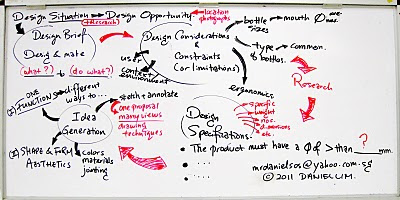 Design Situation → Design Opportunity.
+ research
← location photographs
Design Brief
Design & make
(what?) to (do what?)
Design Considerations &
Constraints
(or limitations)
user
context
environment
bottle sizes → mouth Ø
type → common.
& bottles.
ergonomics
Research
ONE
(I) FUNCTION → different ways to...
Idea Generation
sketch & annotate
one proposal
many views
drawing techniques
(II) SHAPE & FORM
AESTHETICS
colors
materials
jointing
Design Specifications.
specific
weight
nos.
dimensions
etc.
• The product must have a Ø of > than ? mm.
• ....
• ....
mrdanielsos@yahoo.com.sg
© 2011 DANIEL LIM.